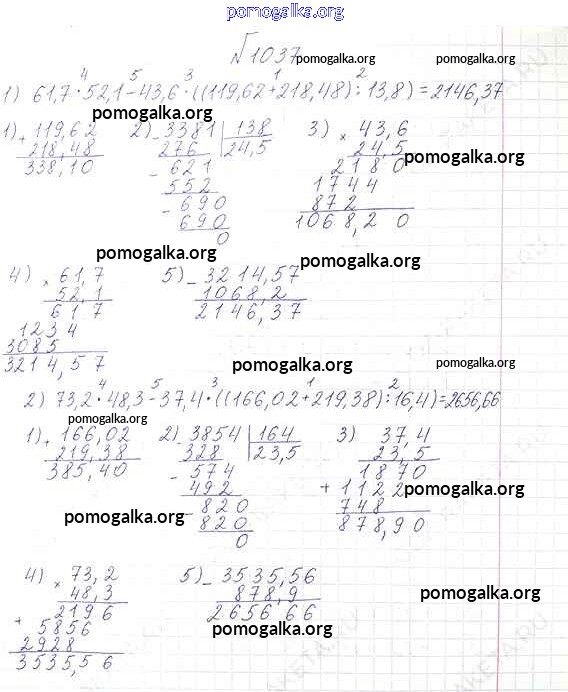 pomogalka.org
№1037
pomogalka.org pomogalka.org
1) 61,7 · 52,1 - 43,6 · ((119,62 + 218,48) : 13,8) = 2146,37
4 5 3 1 2
pomogalka.org pomogalka.org
1) + 119,62
218,48
338,10
2) - 3381 | 138
276 24,5
- 621
552
- 690
690
0
3) × 43,6
24,5
2180
1744
872
1068,20
pomogalka.org
pomogalka.org pomogalka.org
4) × 61,7
52,1
617
1234
3085
3214,57
5) - 3214,57
1068,2
2146,37
pomogalka.org pomogalka.org
2) 73,2 · 48,3 - 37,4 · ((166,02 + 219,38) : 16,4) = 2656,66
4 5 3 1 2
pomogalka.org
1) + 166,02
219,38
385,40
2) - 3854 | 164
328 23,5
- 574
492
- 820
820
0
3) 37,4
23,5
1870
+ 1122
748
878,90
pomogalka.org
pomogalka.org
4) × 73,2
48,3
2196
+ 5856
2928
3535,56
5) - 3535,56
878,9
2656 66
pomogalka.org
pomogalka.org